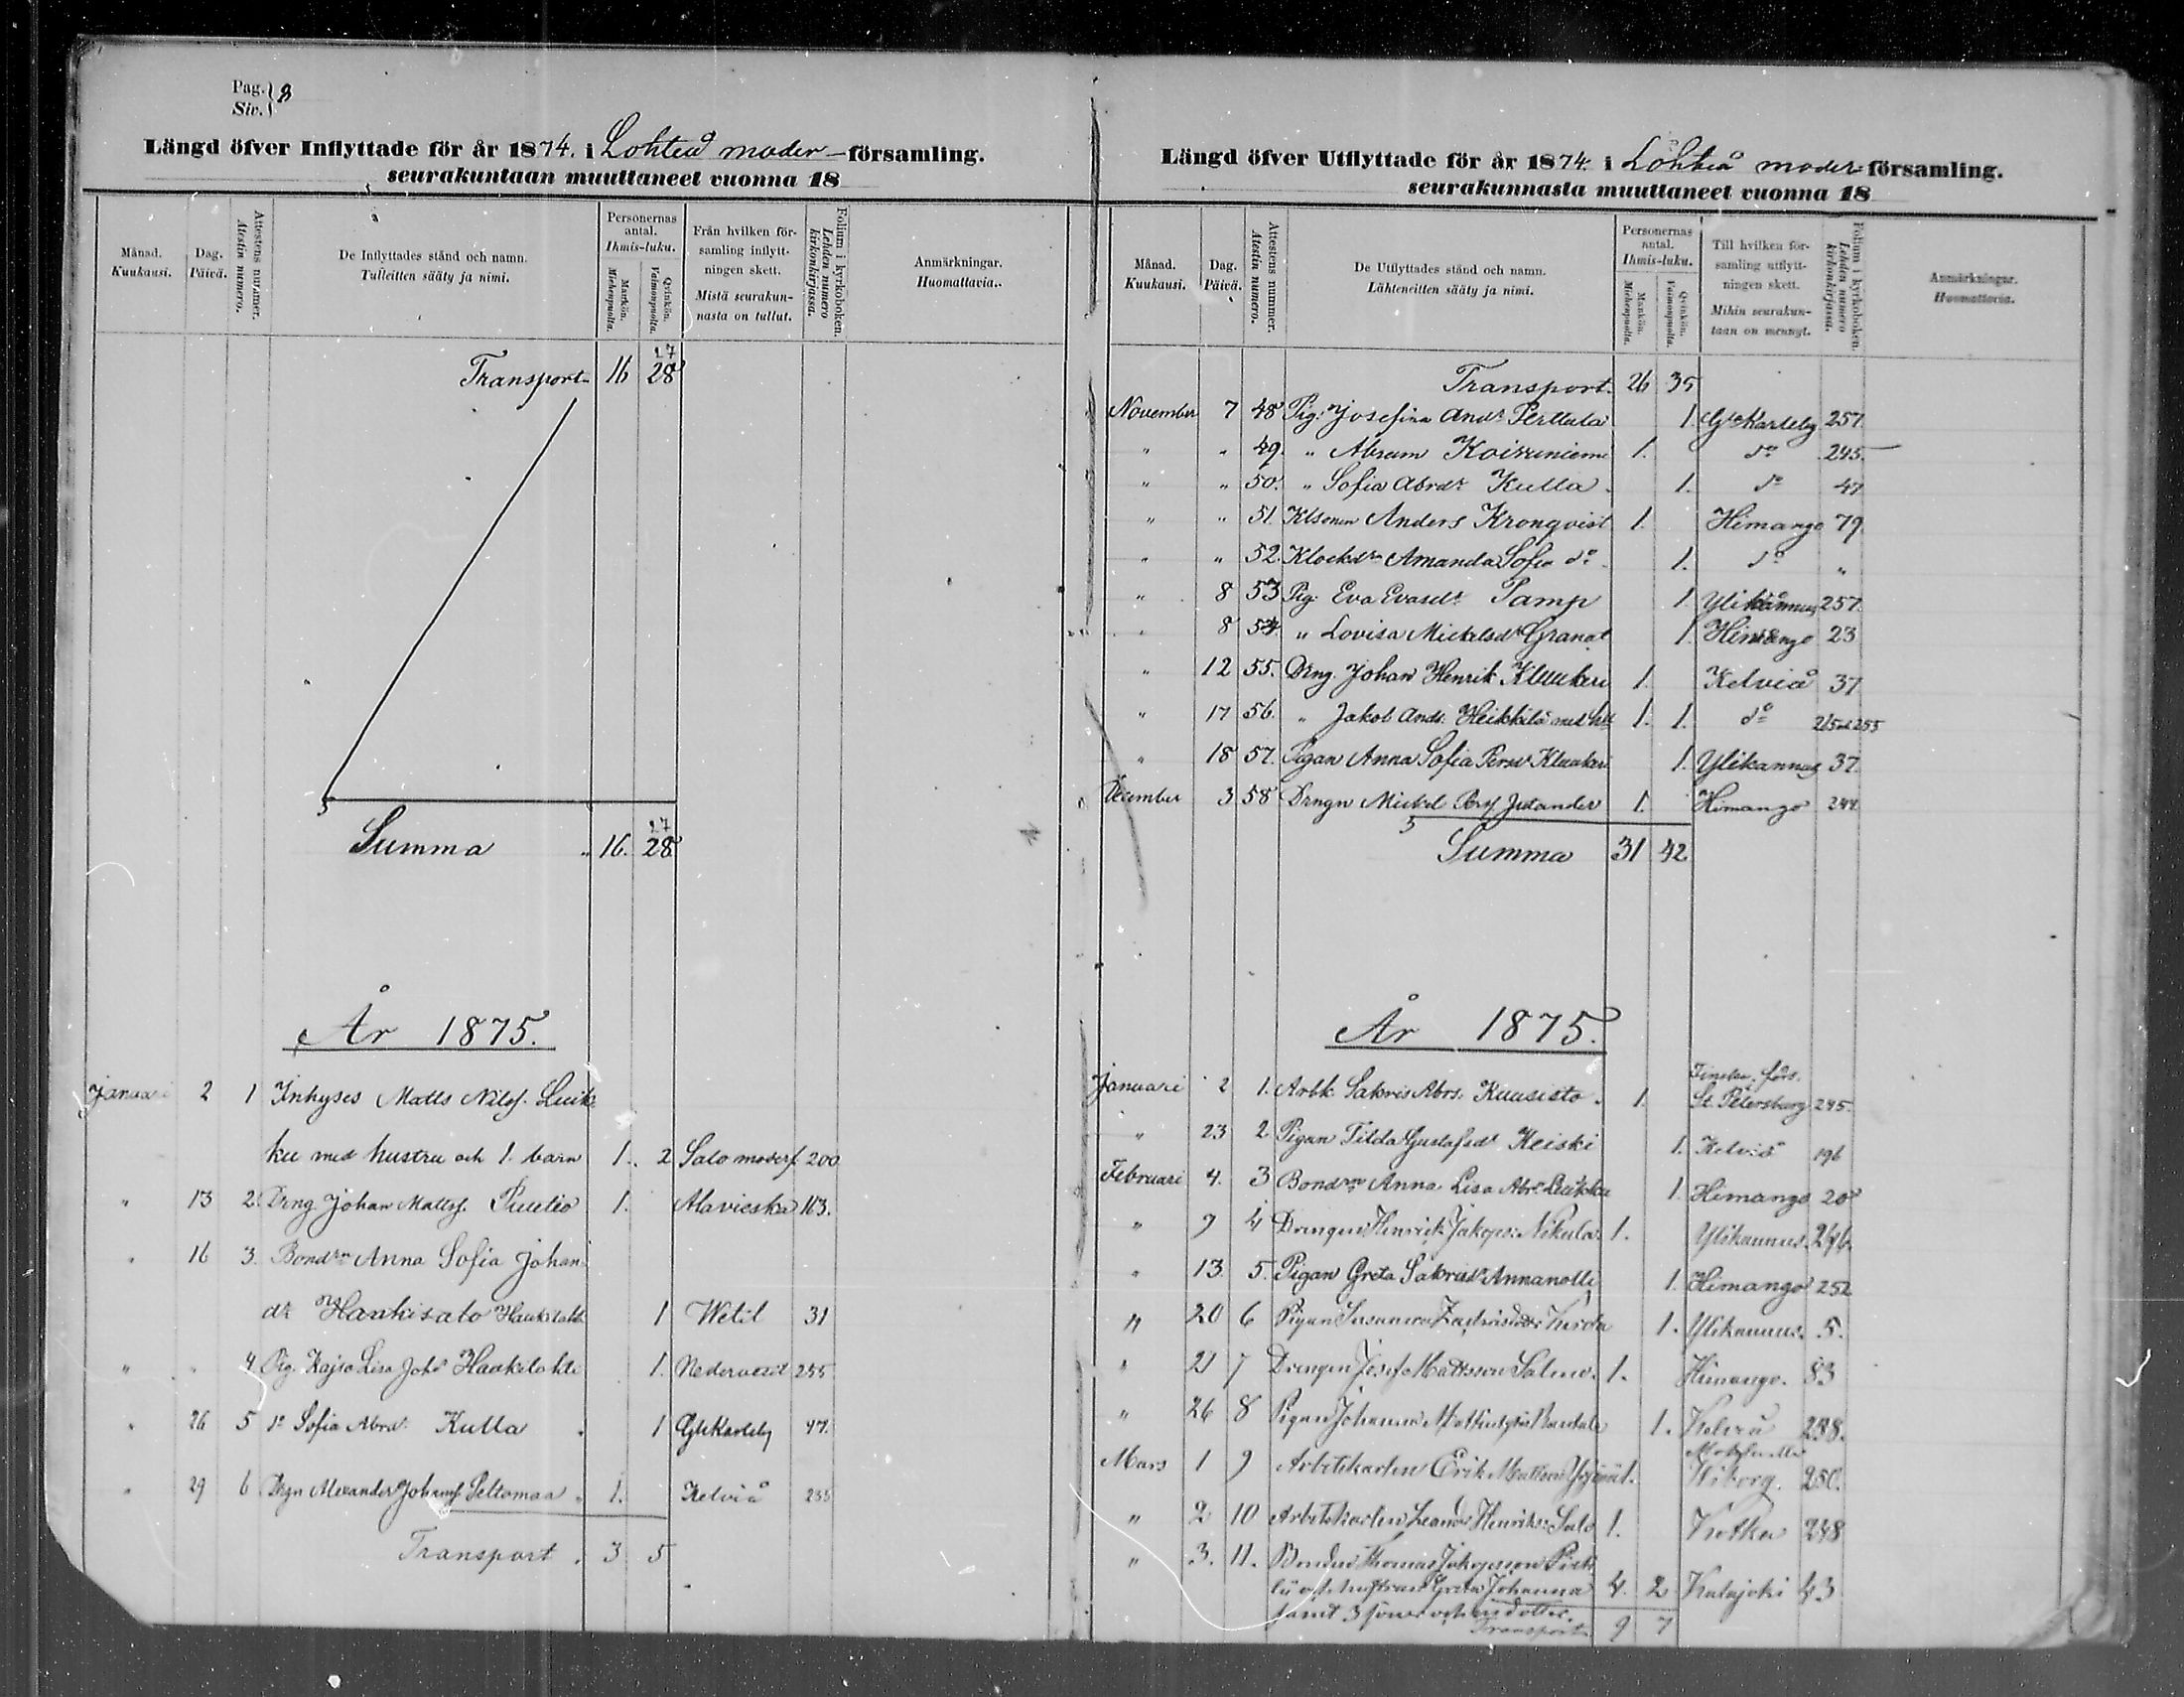 Pag. } 8
Siv.
Längd öfver Inflyttade för år 1874. i Lohteå moder-församling.
seurakuntaan muuttaneet vuonna 18
Månad. Kuukausi.
Dag. Päivä.
Attestens nummer. Atestin numero.
De Inflyttades stånd och namn. Tulleitten sääty ja nimi.
Personernas antal. Ihmis-luku.
Mankön. Miehenpuolta.
Qvinkön. Vaimonpuolta.
Från hvilken församling inflyttningen skett. Mistä seurakunnasta on tullut.
Folium i kyrkoboken. Lehden numero kirkonkirjassa.
Anmärkningar. Huomattavia.
27
Transport 16 28
27
Summa 16. 28
År 1875.
Januari 2 1 Inhyses Matts Nilsf. Luik
ku med hustru och 1 barn 1. 2 Salo moderf. 200
" 13 2. Dräng Johan Mattsf. Puutio 1. Alavieska 163.
" 16 3. Bondrn Anna Sofia Johan
dr Haukisalo 1 Wetil 31
" " 4 Pig. Kajsa Lisa Johd Haukilahti 1. Nedervetil 255
" 26 5 do Sofia Abrd. Kulla 1 GleKarleby 47.
" 29 6 Drgn Alexander Johansf. Peltomaa 1. Kelviå 235
Transport . 3 5
Längd öfver Utflyttade för år 1874. i Lohteå moder församling.
seurakunnasta muuttaneet vuonna 18
Månad. Kuukausi.
Dag. Päivä.
Attestens nummer. Atestin numero.
De Utflyttades stånd och namn. Lähteneitten sääty ja nimi.
Personernas antal. Ihmis-luku.
Mankön. Miehenpuolta.
Qvinkön. Vaimonpuolta.
Till hvilken församling utflyttningen skett. Mihin seurakuntaan on mennyt.
Folium i kyrkoboken. Lehden numero kirkonkirjassa.
Anmärkningar. Huomattavia.
Transport. 26 35
November 7 48 Pig. Josefina Andr Perttula 1. Gle Karleby 257.
" " 49. " Abram Koivuniemi 1. do 245.
" " 50. " Sofia Abrdr Kulla 1. do 47
" " 51 Anders Kronqvist 1. Himango 79
" " 52. Klockdr Amanda Sofia do 1. do "
" 8 53 Pig. Eva Evasdr Pamp 1 Ylikannus 257.
" 8 54. " Lovisa Mickelsdr Granat 1. Himango 23
" 12 55. Dräng. Johan Henrik Kluukeri 1. Kelviå 37
" 17 56. " Jakob Andr. Heikkilä med 1. 1. do 255
" 18 57. Pigan Anna Sofia Persdr Kluukeri 1. Ylikannus 37.
December 3 58 Drngn Mickel Jutander 1. Himango 244
Summa 31 42
År 1875.
Januari 2 1. Arbk. Sakris Abrs. Kuusisto. 1. Finska förs. St. Petersburg 245.
" 23 2 Pigan Tilda Gustafsdr Keiski 1. Kelviå 196
Februari 4. 3 Bondrn Anna Lisa Abr. Luikku 1. Himango 208
" 9 4 Drengen Henrik Jakops. Nikula. 1. Ylikannus. 246.
" 13. 5. Pigan Greta Sakrisdr Annanolli 1. Himango 252
" 20 6 Pigan Susanna 1. Ylikannus. 5.
" 21 7 Drengen Josef Mattsson Salmo. 1. Himango. 83
" 26 8 Pigan Johanna 1. Kelviå 238.
Mars 1 9 Arbetskarlen Erik Mattson 1. Wiborg. 250.
" 2 10 Arbetskarlen Leander Henriks. Salo 1. Kotka 248
" 3. 11. Bonden Thomas Jakopsson
och hustrun Greta Johanna 4. 2 Kalajoki 43
samt 3 söner och en dotter.
Transport 9 7